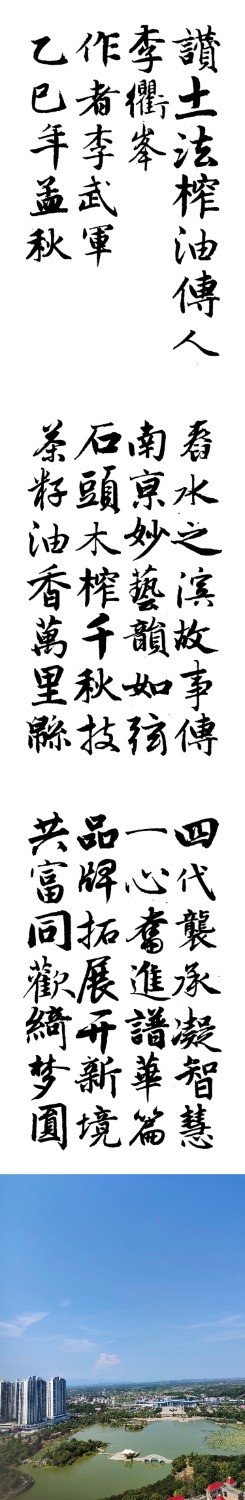 讚土法榨油傳人
李衢峯
作者李武軍
乙巳年孟秋
舂水之濱故事傳
南京妙藝韻如弦
石頭木榨千秋技
茶籽油香萬里綿
四代襲承凝智慧
一心奮進譜華篇
品牌拓展开新境
共富同歡綺梦圓